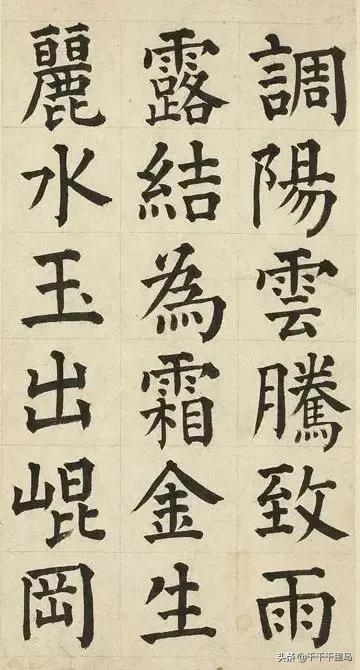 調陽雲騰致雨
露結為霜金生
麗水玉出崐岡
头条 @千千千里马